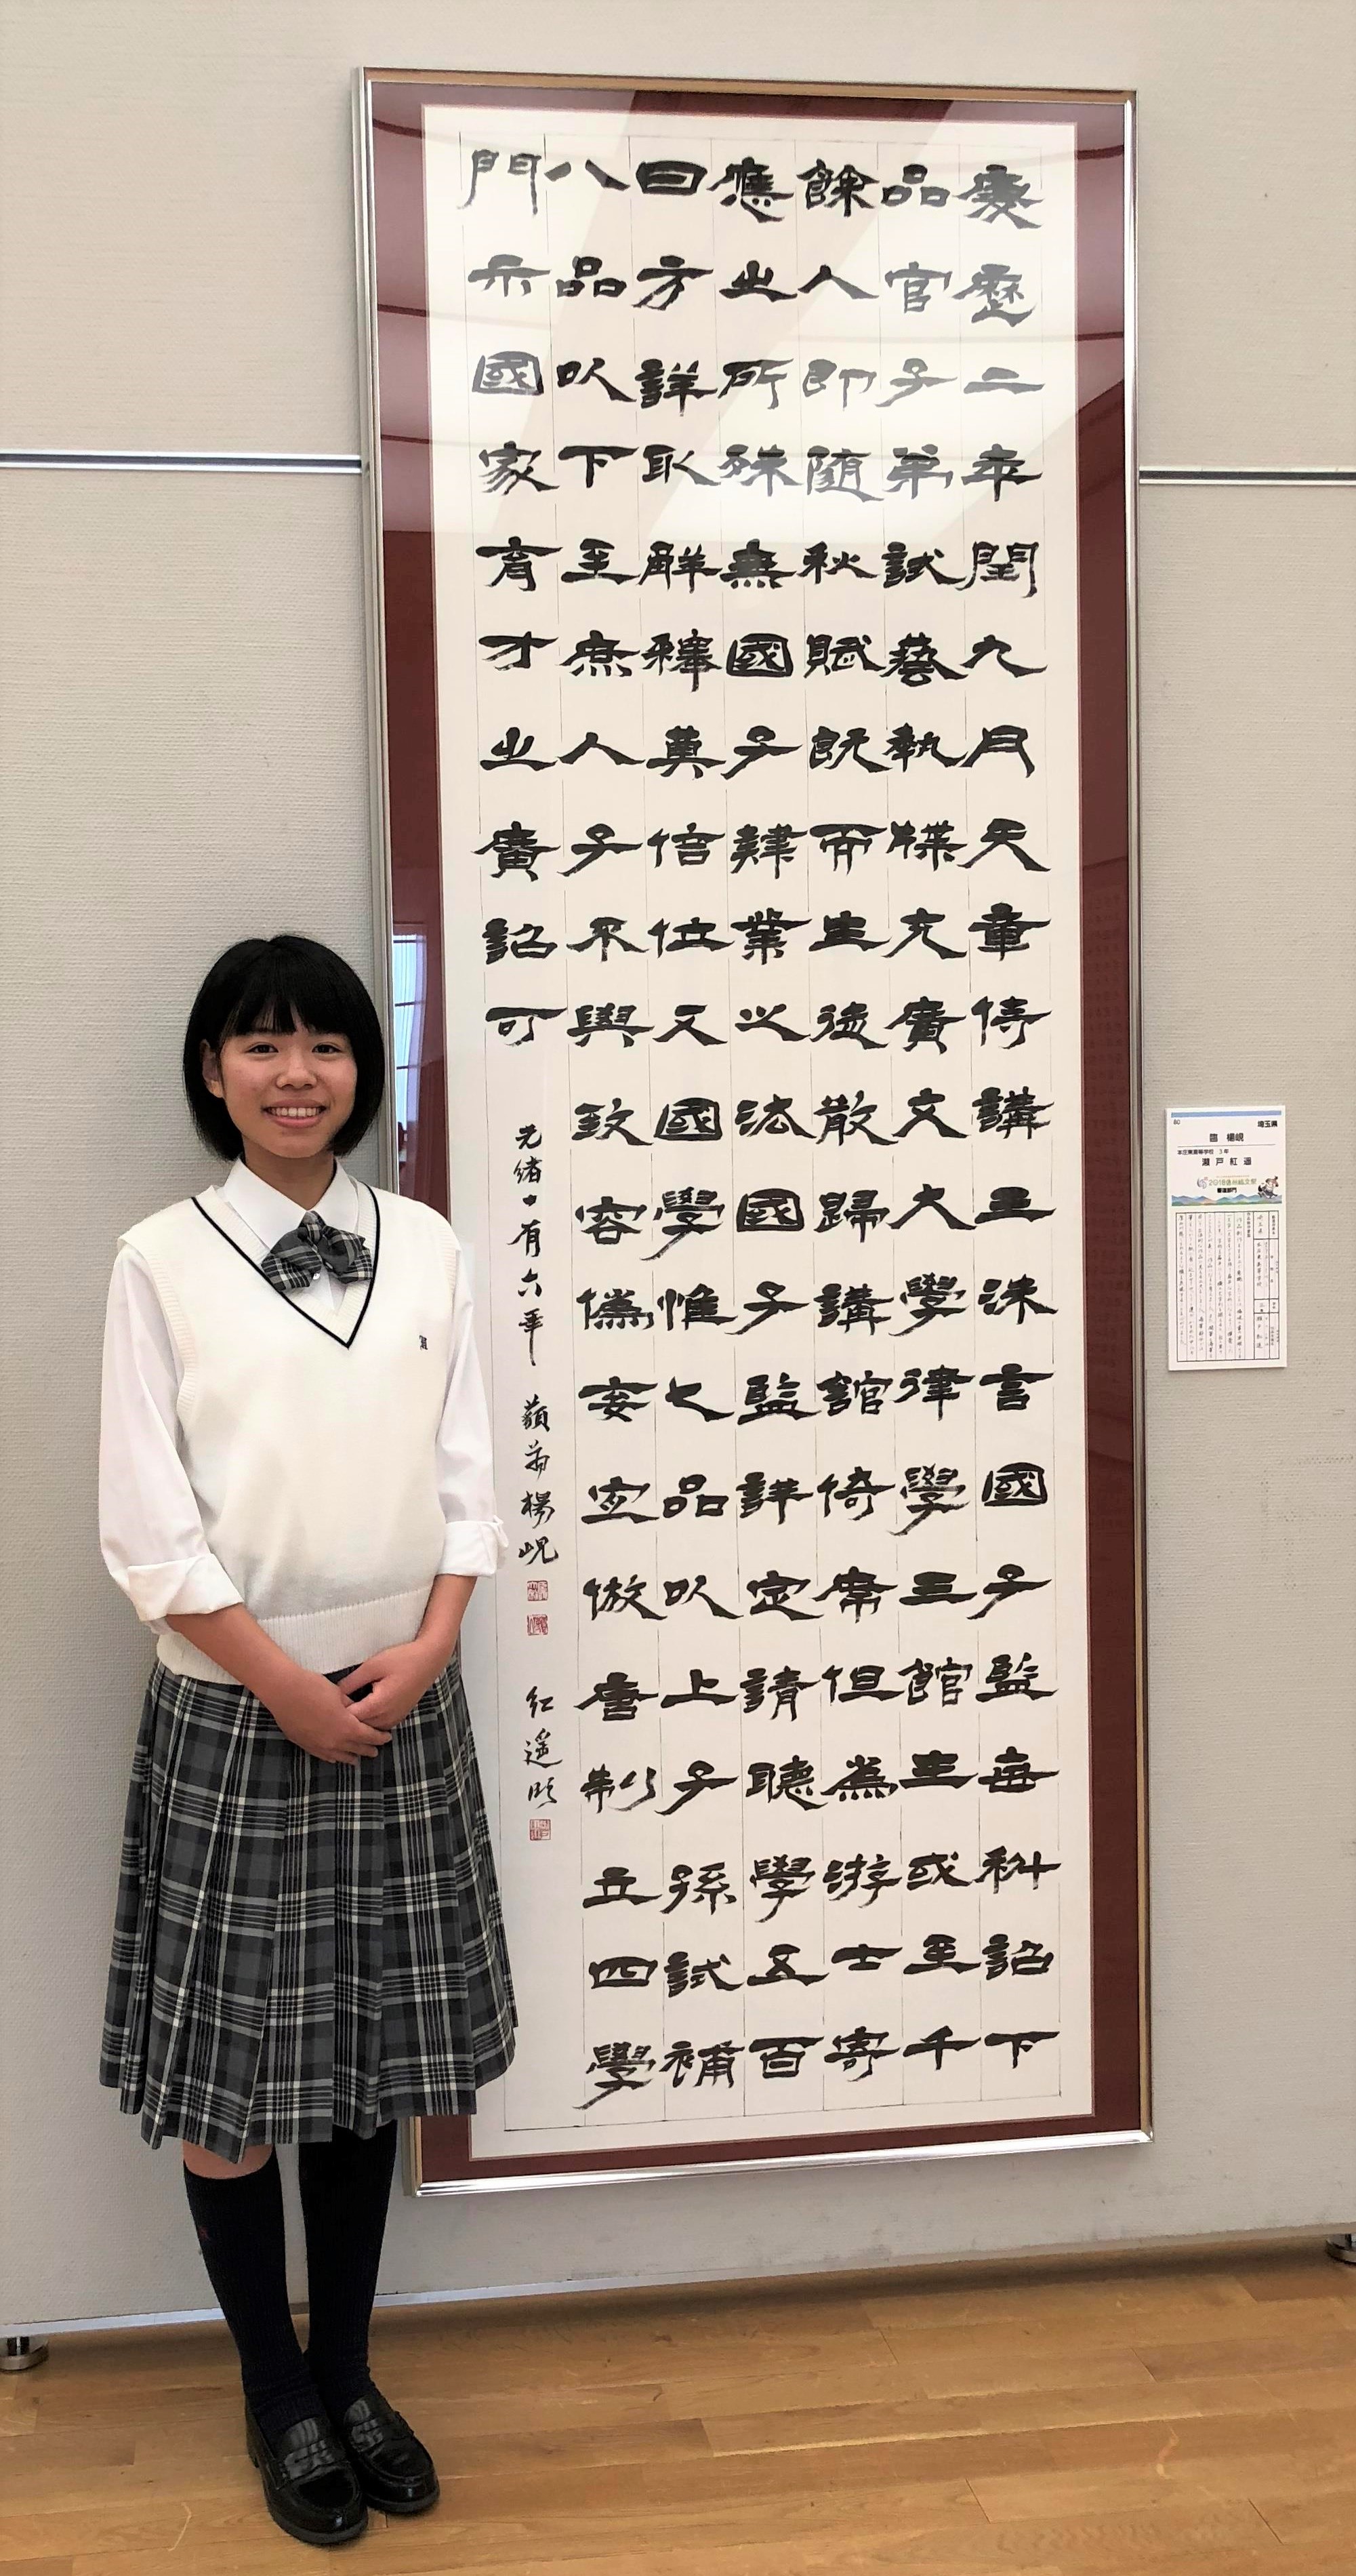 慶歷二年閏九月天章侍講王洙言國子監每科詔下
品官子弟試藝執牒充廣文大學律學三館主或至千
餘人即随秋賦既而生徒散歸講館倚席但為游士寄
應之所殊無國子肄業以法國子監詳定請聽學五百
曰方詳取解釋奠信位又國學惟七品以上子孫試補
八品以下至庶人子不與致容偽妄宜倣唐制立四學
門示國家育才之廣詔可
光緒十有六年 藐翁楊峴 紅遥臨
80 埼玉県
臨 楊峴
本庄東高等学校 3年
瀬戸紅遥
2018信州総文祭
書道部門